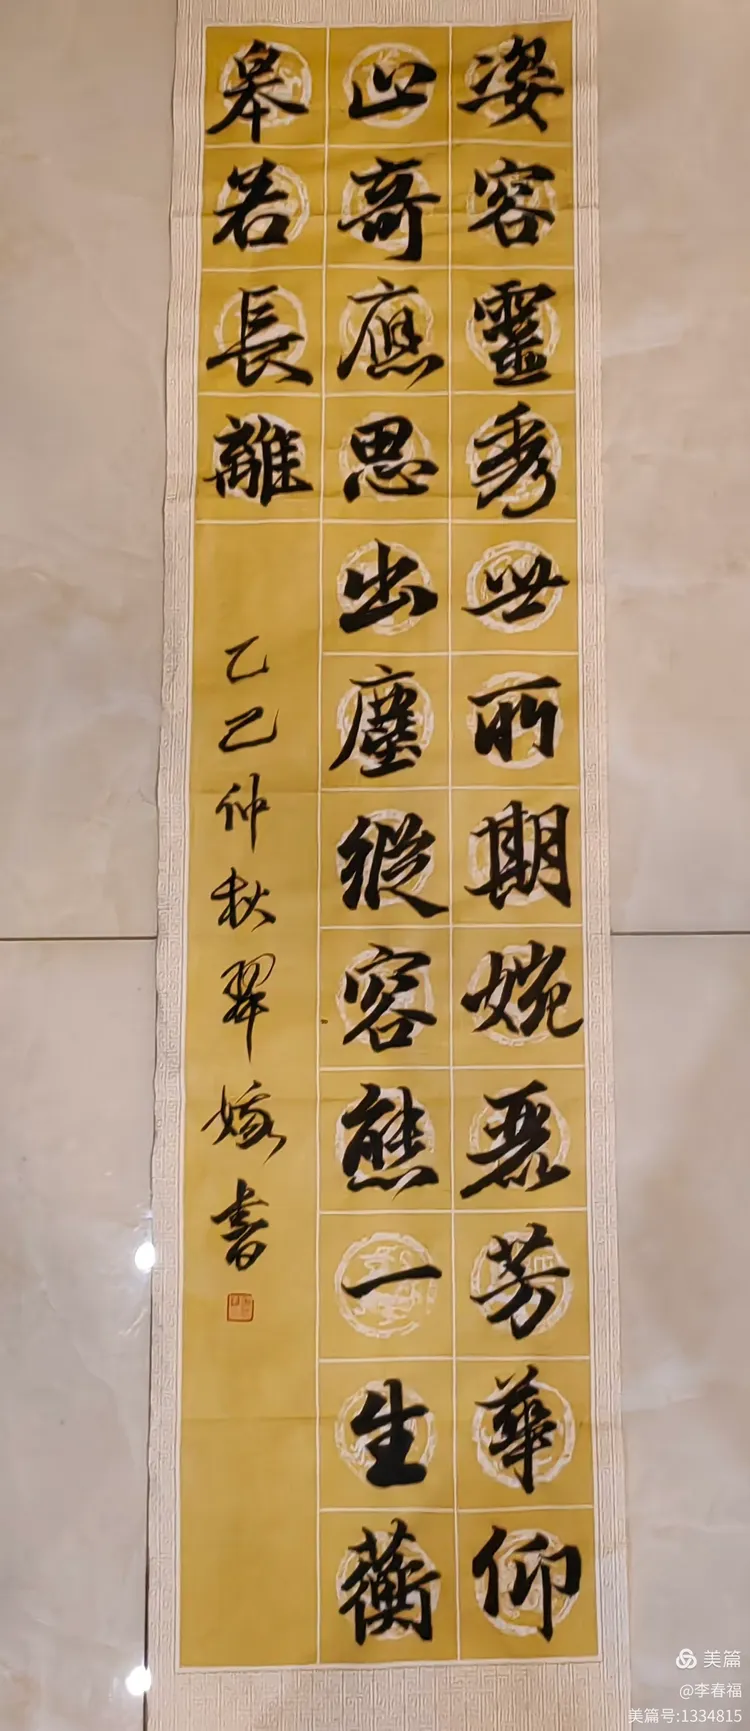 姿容靈秀世所期婉麗芳華仰
山奇應思出塵縱容態一生蘅
皋若長離
乙巳仲秋翠嫁書
美篇
@李春福
美篇号:1334815